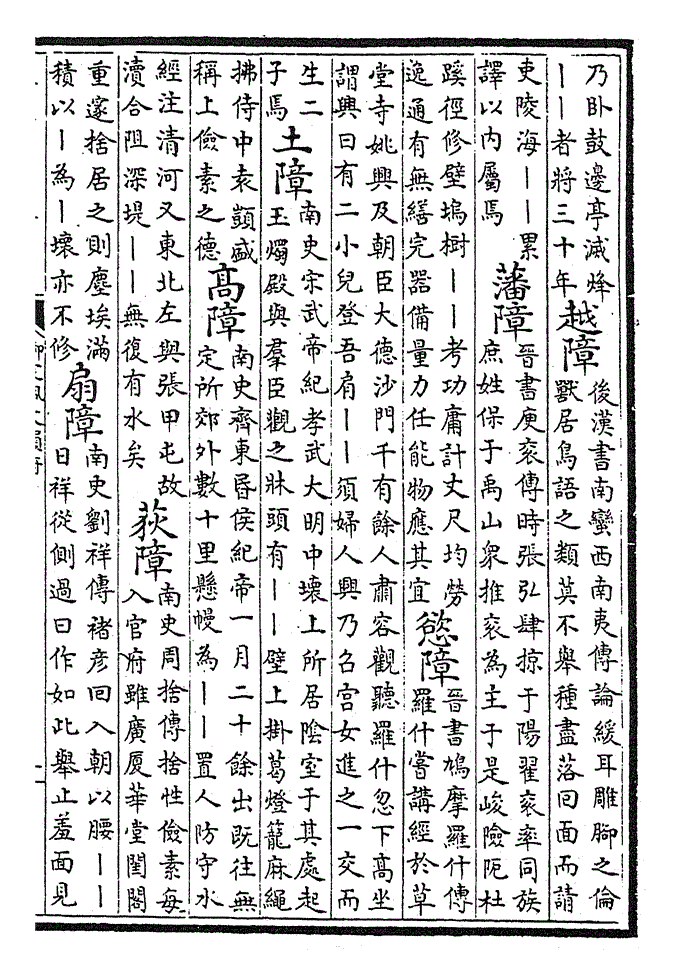 乃臥鼓邊亭滅烽
——者將三十年
越障
後漢書南蠻西南夷傳論緩耳雕腳之倫
獸居鳥語之類莫不舉種盡落回面而請
吏陵海——累
譯以内屬焉
藩障
晉書庾袞傳時張弘肆掠于陽翟袞率同族
庶姓保于禹山衆推袞為主于是峻險阨杜
蹊徑修壁塢樹——考功庸計丈尺均勞
逸通有無繕完器備量力任能物應其宜
慾障
晉書鳩摩羅什傳
羅什嘗講經於草
堂寺姚興及朝臣大德沙門千有餘人肅容觀聽羅什忽下高坐
謂興曰有二小兒登吾肩——須婦人興乃召宫女進之一交而
生二
子焉
土障
南史宋武帝紀孝武大明中壞上所居陰室于其處起
玉燭殿與羣臣觀之牀頭有——壁上掛葛燈籠麻繩
拂侍中袁顗盛
稱上儉素之德
高障
南史齊東昏侯紀帝一月二十餘出既往無
定所郊外數十里懸幔為——置人防守水
經注清河又東北左與張甲屯故
瀆合阻深堤——無復有水矣
荻障
南史周捨傳捨性儉素每
入官府雖廣厦華堂閨閣
重邃捨居之則塵埃滿
積以—為—壞亦不修
扇障
南史劉祥傳褚彦回入朝以腰——
日祥從側過曰作如此舉止羞面見